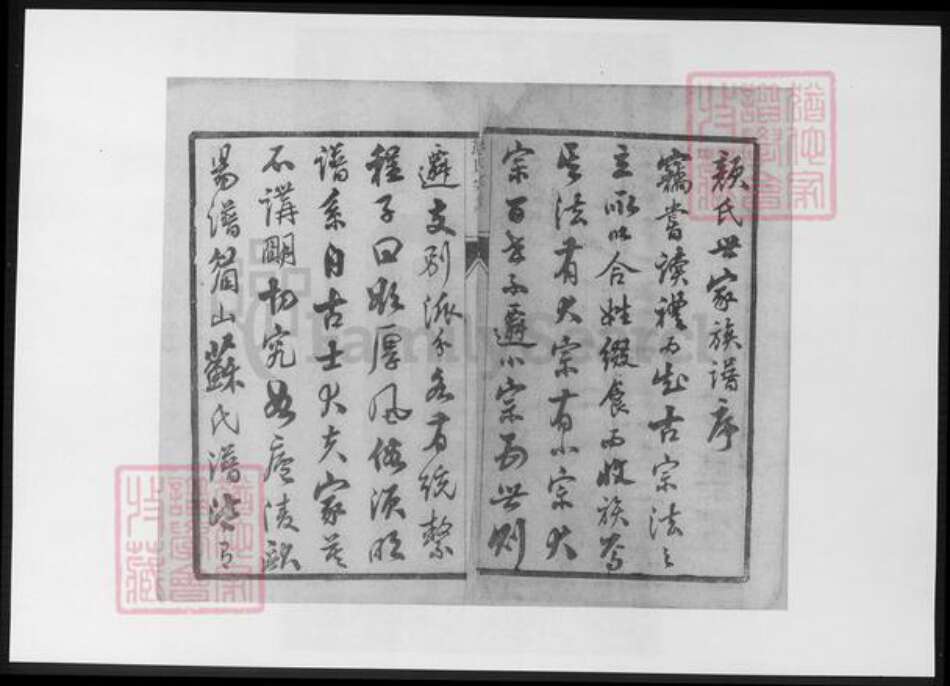 顏氏世家族譜序
竊嘗讀禮而知古宗法之
立所以合姓綴食而收族焉
法有大宗有小宗大
宗百世不遷小宗五世則
遷支別派分各有統繫
程子曰欲厚風俗須明
譜系自古士大夫家莫
不講明切究如廬陵歐
昜譜眉山蘇氏譜
猶他家
譜學會
特藏
猶他家
譜學會
特藏
FamilySearch